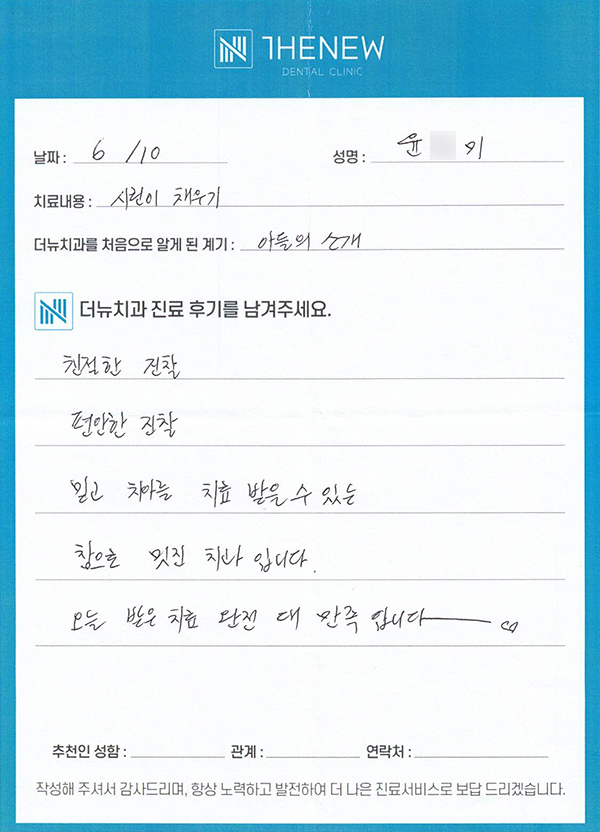 THENEW
DENTAL CLINIC
날짜 : 6/10 성명 : 윤 기
치료내용 : 시린이 채우기
더뉴치과를 처음으로 알게 된 계기 : 아들의 소개
더뉴치과 진료 후기를 남겨주세요.
친절한 진찰
편안한 진찰
믿고 치아를 치료 받을 수 있는
참으로 멋진 치과 입니다.
오늘 받은 치료 완전 대 만족 입니다
추천인 성함 : 관계 : 연락처 :
작성해 주셔서 감사드리며, 항상 노력하고 발전하여 더 나은 진료서비스로 보답 드리겠습니다.